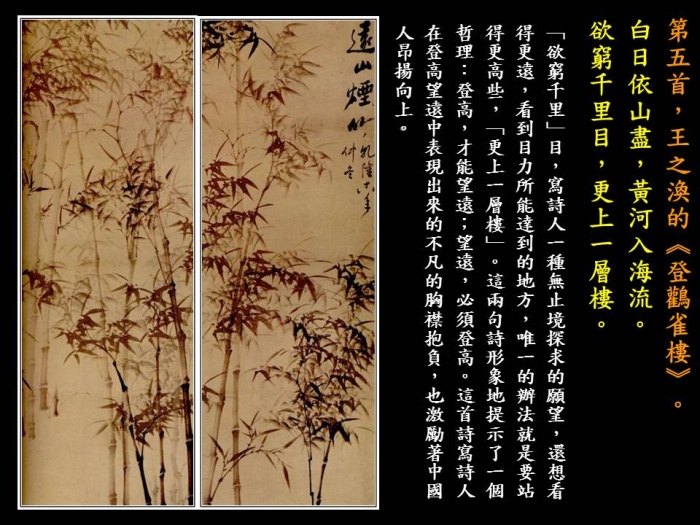 第五首，王之渙的《登鸛雀樓》。
白日依山盡，黃河入海流。
欲窮千里目，更上一層樓。
「欲窮千里」目，寫詩人一種無止境探求的願望，還想看
得更遠，看到目力所能達到的地方，唯一的辦法就是要站
得更高些，「更上一層樓」。這兩句詩形象地提示了一個
哲理：登高，才能望遠；望遠，必須登高。這首詩寫詩人
在登高望遠中表現出來的不凡的胸襟抱負，也激勵著中國
人昂揚向上。
遠山煙竹